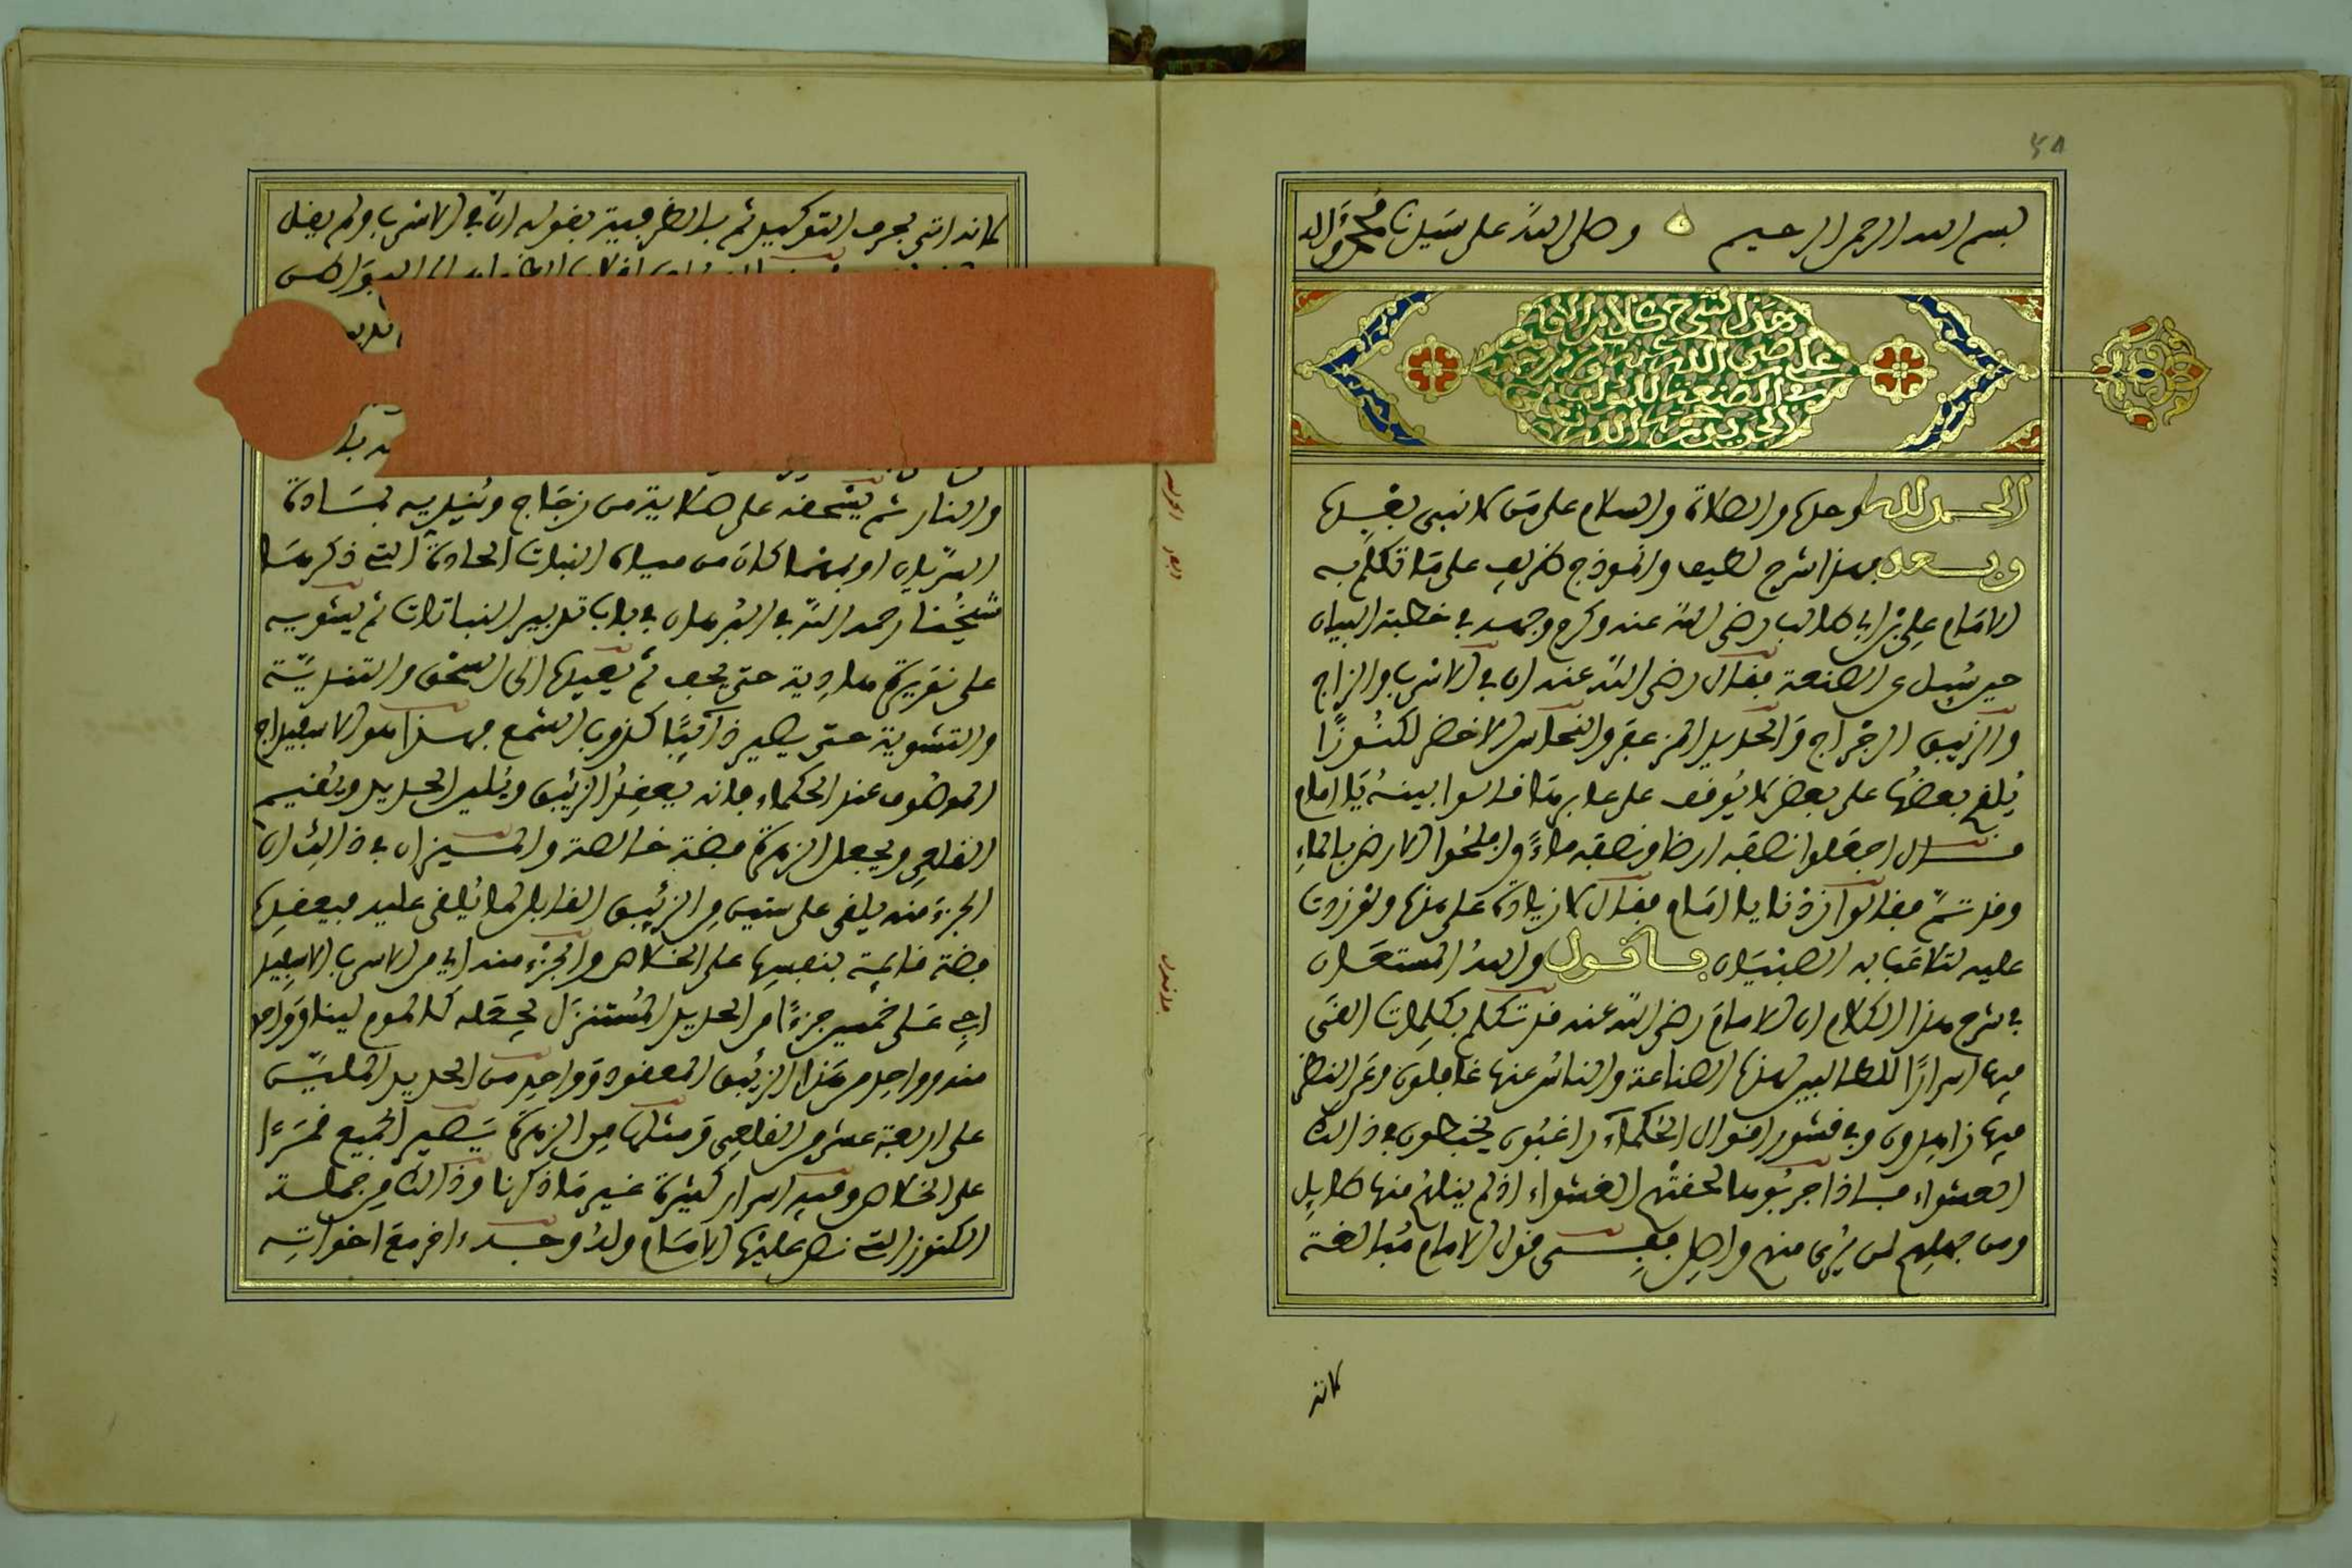 ٤٨
بسم الله الرحمن الرحيم وصلى الله على سيدنا محمد وآله
هذا شرح كلام الإمام
علي رضي الله عنه وكرم وجهه
في الصنعة للمؤلف
الجابري رحمه الله
الحمد لله وحده والصلاة والسلام على من لا نبي بعده
وبعد فهذا شرح لطيف وانموذج ظريف على ما تكلم به
الامام علي بن ابي طالب رضي الله عنه وكرم وجهه في خطبة البيان
حين سئل عن الصنعة فقال رضي الله عنه ان في الاسرب والزاج
والزئبق الرجراج والحديد المزعفر والنحاس الاخضر لكنوزا
يلقح بعضها على بعض لا يوقف على عابرها قالوا بينه يا امام
قال اجعلوا نصفه ارضا ونصفه ماء وافلحوا الارض بالماء
وقد تم فقالوا زدنا يا امام فقال لا زيادة على هذا ولو زدت
عليه لتلاعب به الصبيان فاقول والله المستعان
في شرح هذا الكلام ان الامام رضي الله عنه قد تكلم بكلمات القى
فيها اسرارا للطالبين لهذه الصناعة والناس عنها غافلون وعن النظر
فيها زاهدون وفي قشور اقوال الحكماء راغبون يخبطون في ذلك
العشواء فاذا جربوها لحقتهم الغشواء اذ لم ينلهم منها طايل
ومن جهلهم لن يرى منهم واصل ففي قول الامام مبالغة
كانه
كانه اتى بحرف التوكيد ثم بالظرفية بقوله ان في الاسرب ولم يقل
والنار ثم يسحقه على صلاية من زجاج ويندیه بمادة
السريان او بهما كان من مياه النبات الحادة التي ذكرها
شيخنا رحمه الله في البرهان في باب تدبير النباتات ثم يشويه
على نقرة هادية حتى يجف ثم يعيده الى السحق والتندية
والتشوية حتى يصير ذائبا كذوب الشمع فهذا هو الاسفيداج
الموصوف عند الحكماء فانه يعقد الزئبق ويلين الحديد ويقيم
القلعي ويجعل الزهرة فضة خالصة والميزان في ذلك ان
الجزء منه يلقى على ستين من الزئبق القابل لما يلقى عليه فيعقده
فضة قايمة بنفسها على الخلاص والجزء منه اي من الاسرب الاسفيد
اج على خمسين جزءا من الحديد المستنزل يجعله كالموم لينا وواحد
منه وواحد من هذا الزئبق المعقود وواحد من الحديد الملين
على اربعة عشر من القلعي ومثلها من الزهرة يصير الجميع قمرا
على الخلاص وفيه اسرار كثيرة غير ما ذكرنا وذلك من جملة
الكنوز التي نص عليها الامام وله وجه اخر مع اخواته